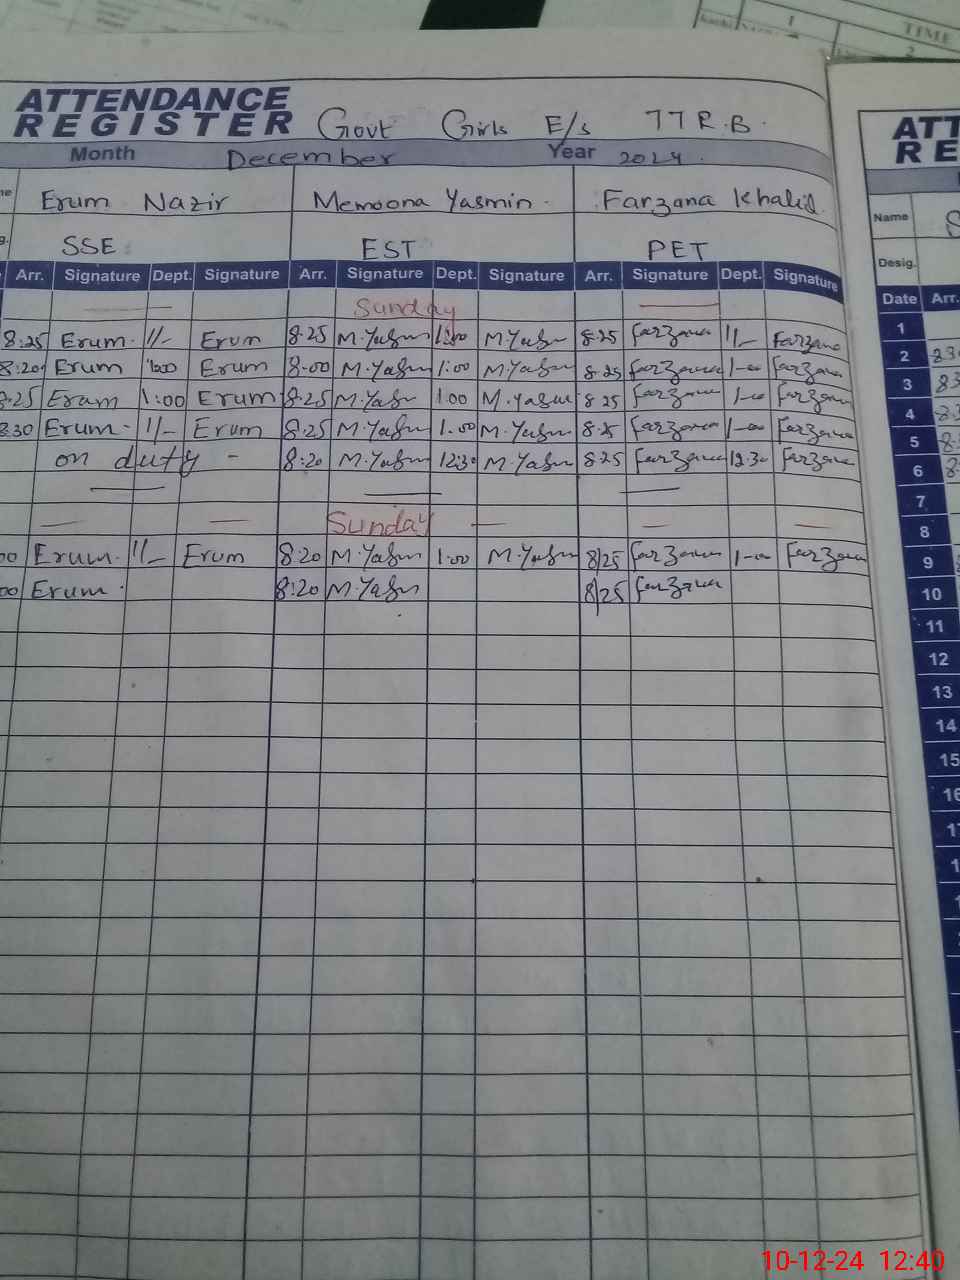 1
TIME
2
ATTENDANCE
REGISTER Govt Girls E/s 77 R.B.
Month December Year 2024.
Erum Nazir Memoona Yasmin. Farzana Khalid.
SSE EST PET
Arr. Signature Dept. Signature Arr. Signature Dept. Signature Arr. Signature Dept. Signature
Sunday
8:25 Erum. 1/- Erum 8.25 M.Yasmin 1:00 M.Yasmin 8.25 Farzana 1/- Farzana
8:20 Erum 1:00 Erum 8.00 M.Yasmin 1:00 M.Yasmin 8.25 Farzana 1-00 Farzana
8.25 Erum 1:00 Erum 8.25 M.Yasmin 1.00 M.Yasmin 8.25 Farzana 1-00 Farzana
8.30 Erum. 1/- Erum 8.25 M.Yasmin 1.00 M.Yasmin 8.25 Farzana 1-00 Farzana
on duty - 8:20 M.Yasmin 12:30 M.Yasmin 8.25 Farzana 12.30 Farzana
Sunday
00 Erum. 1/- Erum 8:20 M.Yasmin 1.00 M.Yasmin 8/25 Farzana 1-00 Farzana
00 Erum. 8:20 M.Yasmin 8/25 Farzana
ATT
RE
Name S
Desig.
Date Arr.
1
2
3
4
5
6
7
8
9
10
11
12
13
14
15
16
10-12-24 12:40